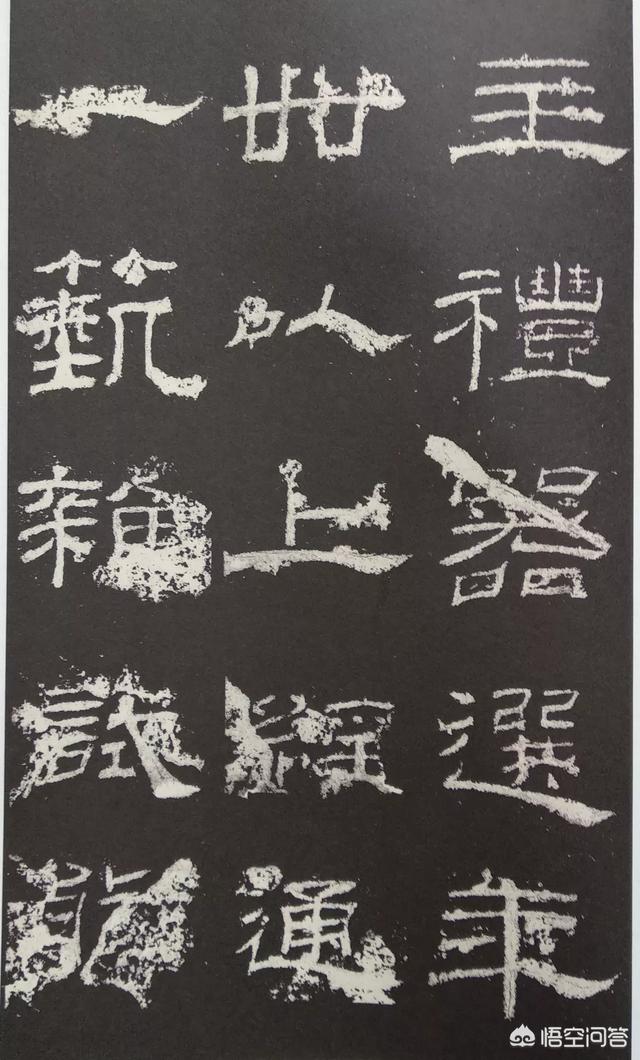 主禮器選年
卌以上經通
一蓺雜試能
悟空问答